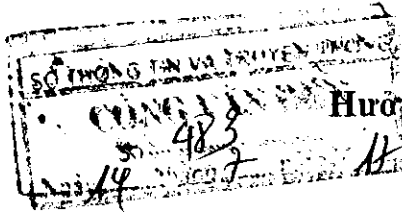 SỞ THÔNG TIN VÀ TRUYỀN THÔNG
CÔNG VĂN ĐẾN
Hướ
Số 483
Ngày 14 tháng 7 11